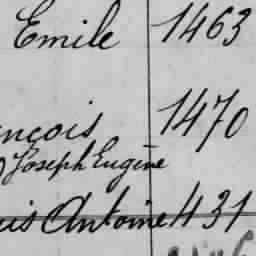 Emile 1463
ncois 1470
Joseph Eugène
uis Antoine 431